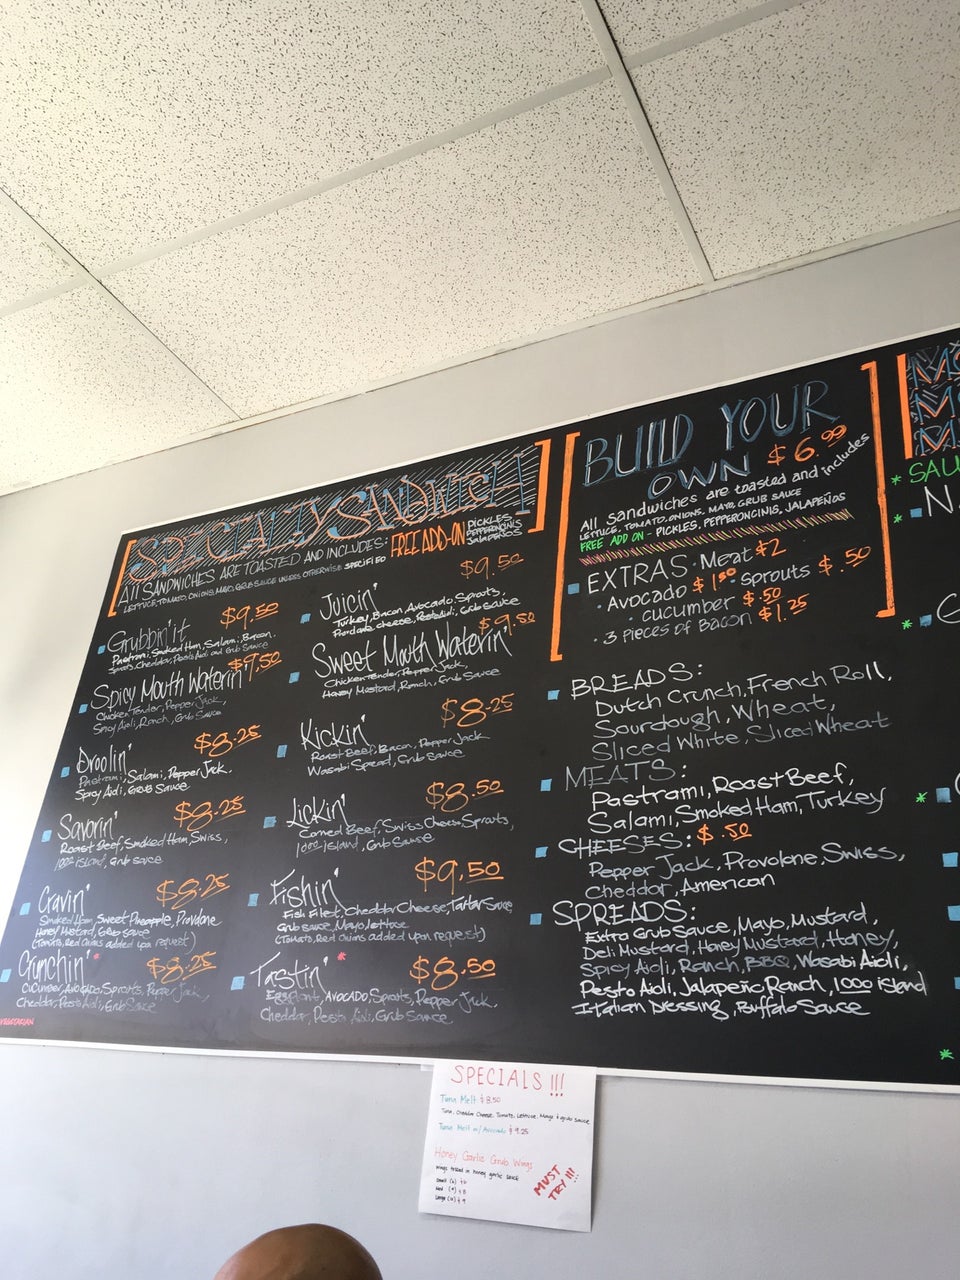 SPECIALTY SANDWICH
All SANDWICHES ARE TOASTED AND INCLUDES:
LETTUCE, TOMATO, ONIONS, MAYO, GRUB SAUCE UNLESS OTHERWISE SPECIFIED
FREE ADD-ON
PICKLES
PEPPERONCINIS
Jalapeños
Grubbin' it $9.50
Pastrami, Smoked Ham, Salami, Bacon,
Sprouts, Cheddar, Pesto Aioli and Grub Sauce
Spicy Mouth Waterin' $9.50
Chicken Tender, Pepper Jack,
Spicy Aioli, Ranch, Grub Sauce
Droolin' $8.25
Pastrami, Salami, Pepper Jack,
Spicy Aioli, GRUB SAUCE
Savorin' $8.25
Roast Beef, Smoked Ham, Swiss,
1000 island, Grub sauce
Cravin' $8.25
Smoked Ham, Sweet Pineapple, Provolone
Honey Mustard, Grub sauce
(Tomato, Red Onions added upon request)
Crunchin' * $8.25
Cucumber, Avocado, Sprouts, Pepper Jack,
Cheddar, Pesto Aioli, Grub Sauce
VEGETARIAN
Juicin' $9.50
Turkey, Bacon, Avocado, Sprouts,
Provolone cheese, Pesto Aioli, Grub Sauce
Sweet Mouth Waterin' $9.50
Chicken Tender, Pepper Jack,
Honey Mustard, Ranch, Grub Sauce
Kickin' $8.25
Roast Beef, Bacon, Pepper Jack
Wasabi Spread, Grub Sauce
Lickin' $8.50
Corned Beef, Swiss Cheese, Sprouts,
1000 island, Grub Sauce
Fishin' $9.50
Fish Filet, Cheddar Cheese, Tartar Sauce,
Grub sauce, Mayo, lettuce
(Tomato, Red Onions added upon request)
Tastin' * $8.50
Eggplant, AVOCADO, Sprouts, Pepper Jack,
Cheddar, Pesto Aioli, Grub Sauce
BUILD YOUR
OWN $6.99
All sandwiches are toasted and includes
LETTUCE, TOMATO, ONIONS, MAYO, GRUB SAUCE
FREE ADD ON - PICKLES, PEPPERONCINIS, JALAPEÑOS
EXTRAS · Meat $2
· Avocado $1.50 · Sprouts $.50
· cucumber $.50
· 3 pieces of Bacon $1.25
BREADS:
Dutch Crunch, French Roll,
Sourdough, Wheat,
Sliced White, Sliced Wheat
MEATS:
Pastrami, Roast Beef,
Salami, Smoked Ham, Turkey
CHEESES: $.50
Pepper Jack, Provolone, Swiss,
Cheddar, American
SPREADS:
Extra Grub Sauce, Mayo, Mustard,
Deli Mustard, Honey Mustard, Honey,
Spicy Aioli, Ranch, BBQ, Wasabi Aioli,
Pesto Aioli, Jalapeño Ranch, 1000 island
Italian Dressing, Buffalo Sauce
SPECIALS !!!
Tuna Melt $8.50
Tuna, Cheddar Cheese, Tomato, Lettuce, Mayo & grub sauce
Tuna Melt w/ Avocado $9.25
Honey Garlic Grub Wings
Wings tossed in honey garlic sauce
MUST
TRY !!!